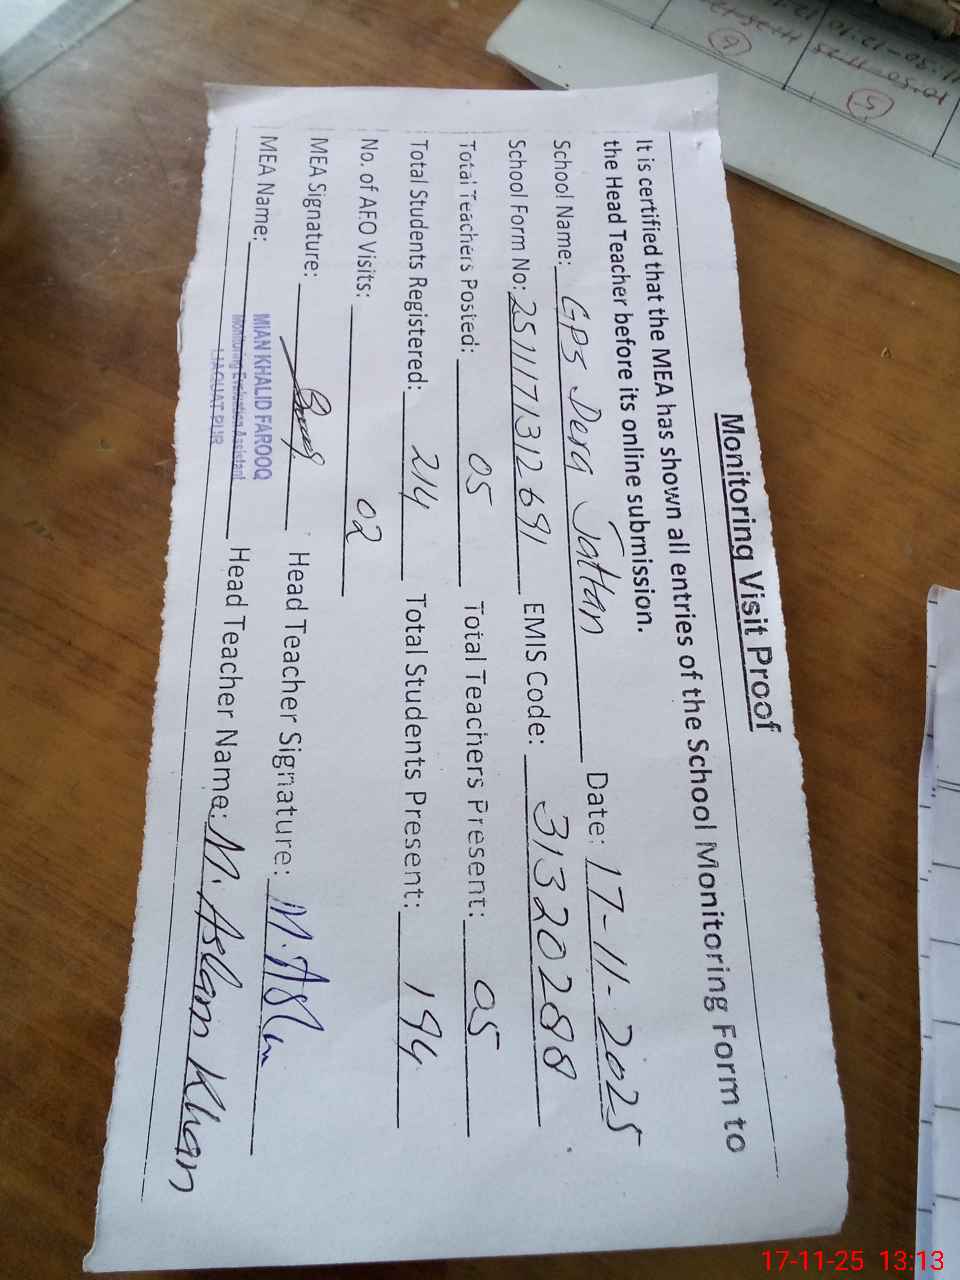 Monitoring Visit Proof
It is certified that the MEA has shown all entries of the School Monitoring Form to
the Head Teacher before its online submission.
School Name: GPS Dera Jattan Date: 17-11-2025
School Form No: 2511171312691 EMIS Code: 31320288
Total Teachers Posted: 05 Total Teachers Present: 05
Total Students Registered: 214 Total Students Present: 194
No. of AEO Visits: 02
MEA Signature: Head Teacher Signature: M. Aslm
MEA Name: MIAN KHALID FAROOQ Head Teacher Name: M. Aslam Khan
Monitoring Evaluation Assistant
LIAQUAT PUR
6
5
17-11-25 13:13